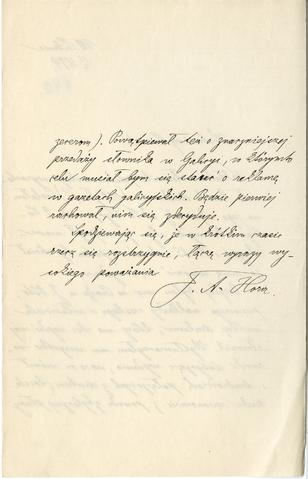 zecerom). Powątpiewał też o znaczniejszej
przedaży słownika w Galicyi, w którym
celu musiał bym się starać o reklamę
w gazetach galicyjskich. Będzie pierwiej
rachował, nim się zdecyduje.
Spodziewając się, że w krótkim czasie
rzecz się rozstrzygnie, łączę wyrazy wy-
sokiego poważania
F. A. Hora